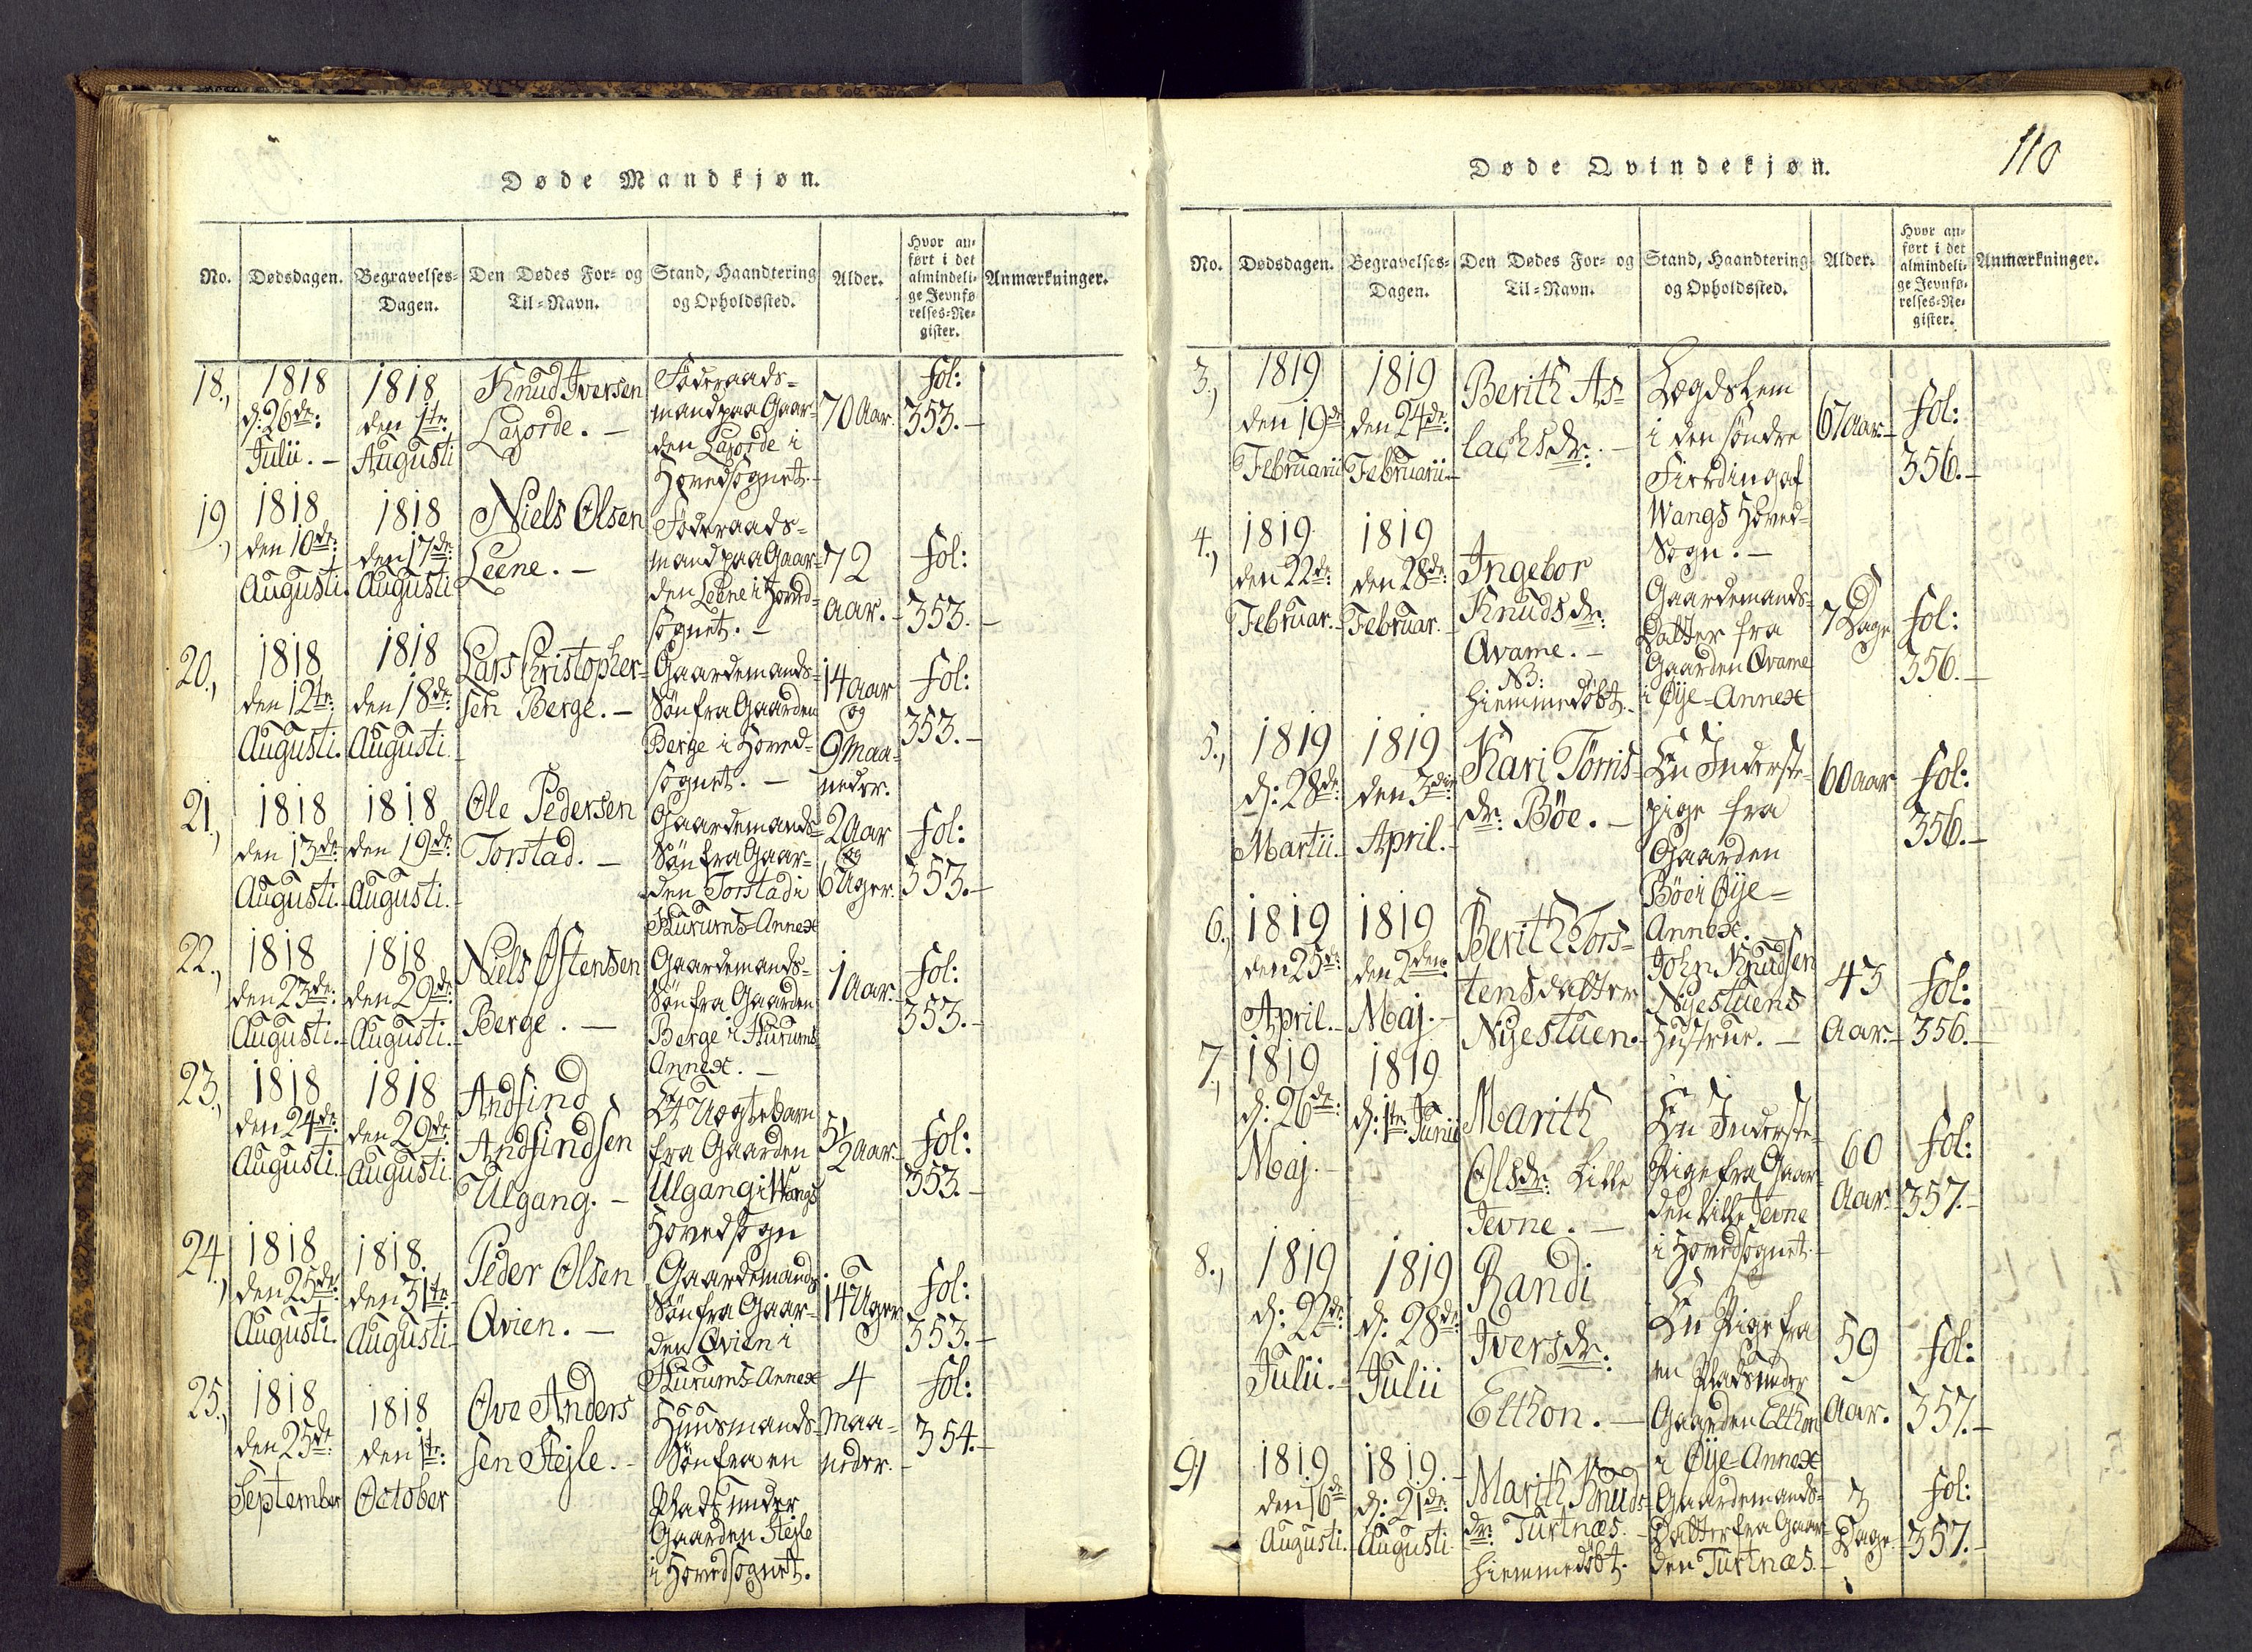 Døde Mandkjøn.
No. Dødsdagen. Begravelses-Dagen. Den Dødes For- og Til-Navn. Stand, Haandtering og Opholdssted. Alder. Hvor anført i det almindelige Jevnførelses-Register. Anmærkninger.
18., 1818 d: 26de: Julii. – 1818 den 1te: Augusti Knud Iversen – Föderaads-
mand paa Gaar-
den i
Hovedsognet. 70 Aar. fol:
353. –
19., 1818
den 10de:
Augusti. 1818
den 17de:
Augusti Niels Olsen
Leene. – Föderaads-
mand paa Gaar-
den Leene i Hoved-
sognet. – 72
aar. – fol:
353. –
20., 1818
den 12te:
Augusti. 1818
den 18de:
Augusti. Lars Christopher-
sen Berge. – Gaardemands-
Sön fra Gaarden
Berge i Hoved-
sognet. – 14 aar
og
9 Maa-
neder. fol:
353. –
21., 1818
den 13de:
Augusti. 1818
den 19de:
Augusti. Ole Pedersen
Torstad. – Gaardemands-
Sön fra Gaar-
den Torstad i
Hurums-Annex 2 Aar
og
6 Uger. fol:
353. –
22., 1818
den 23de:
Augusti. 1818
den 29de:
Augusti. Niels Östensen
Berge. – Gaardemands-
Sön fra Gaarden
Berge i Hurums-
Annex. – 1 Aar. – fol:
353. –
23., 1818
den 24de:
Augusti. 1818
den 29de:
Augusti. Andsind
Andsindsen
Ulgang. – Et Uægtebarn
fra Gaarden
Ulgang i Wangs
Hovedsogn 5 1/2 Aar. – fol:
353. –
24., 1818
den 25de:
Augusti. 1818.
den 31te:
Augusti Peder Olsen
Qvien. – Gaardemands
Sön fra Gaar-
den Qvien i
Hurums-Annex 14 Uger fol:
353. –
25., 1818
den 25de:
September 1818
den 1te:
October Ove Anders
sen Stejle. – Huusmands-
Sön fra en
Plads under
Gaarden Stejle
i Hovedsognet. 4
Maa-
neder. – fol:
354. –
Døde Qvindekjøn.
110
No. Dødsdagen. Begravelses-Dagen. Den Dødes For- og Til-Navn. Stand, Haandtering og Opholdssted. Alder. Hvor anført i det almindelige Jevnførelses-Register. Anmærkninger.
3., 1819
den 19de
Februarii 1819
den 24de:
Februarii Berith As-
lachsdr: – Lægdslem
i den söndre
Fierding af
Wangs Hoved-
Sogn. – 67 Aar. – fol:
356. –
4., 1819
den 22de:
Februar. – 1819
den 28de:
Februar. – Ingebor
Knudsdr:
Qvame. –
NB:
Hiemmedöbt. Gaardemands-
Datter fra
Gaarden Qvame
i Öÿe-Annex 7 Dage fol:
356. –
5., 1819
d: 28de:
Martii. – 1819
den 3die
April. – Kari Törris-
dr: Böe. – En Inderste-
pige fra
Gaarden
Böe i Öÿe-
Annex. – 60 aar fol:
356. –
6., 1819
den 25de:
April. – 1819
den 2den:
Maj. – Berith Tors-
tensdatter
Nÿestuen. John Knudsen
Nÿestuens
Hustrue. – 43
Aar. – fol:
356. –
7., 1819
d: 26de:
Maj. – 1819
d: 1te: Junii Marith
Olsdr: Lille
Jevne. – En Inderste-
Pige fra Gaar-
den Lille Jevne
i Hovedsognet. – 60
Aar fol:
357. –
8., 1819
d: 22de:
Julii. – 1819
d: 28de:
Julii Randi
Iversdr:
Elthon. – En Pige fra
en Plads under
Gaarden Elthon
i Öÿe-Annex 59
Aar. fol:
357. –
9., 1819
den 16de
Augusti. 1819. –
d: 21de:
Augusti Marith Knuds-
dr: Turtnæs.
Hiemmedöbt. Gaardemands-
Datter fra Gaar-
den Turtnæs. – 3
Dage fol:
357. –